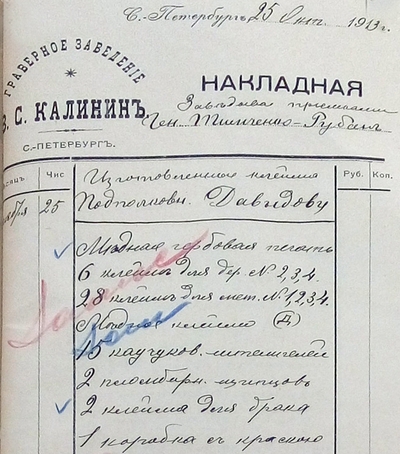 С.-Петербургъ 25 Окт. 1913 г.
ГРАВЕРНОЕ ЗАВЕДЕНІЕ
В. С. КАЛИНИНЪ.
С.-ПЕТЕРБУРГЪ.
НАКЛАДНАЯ
Ген. Тимченко-Рубанъ
Чис
Руб.
Коп.
25
Изготовленныя клейма
Подполковн. Давыдову
Мѣдная гербовая печать
6 клеймъ для дер. № 2,3,4.
28 клеймъ для мет. № 1,2,3,4.
Мѣдная клейма (Д)
15 каучуков. штемпелей
2 пломбирн. щипцовъ
2 клейма для брака
1 коробка съ краскою